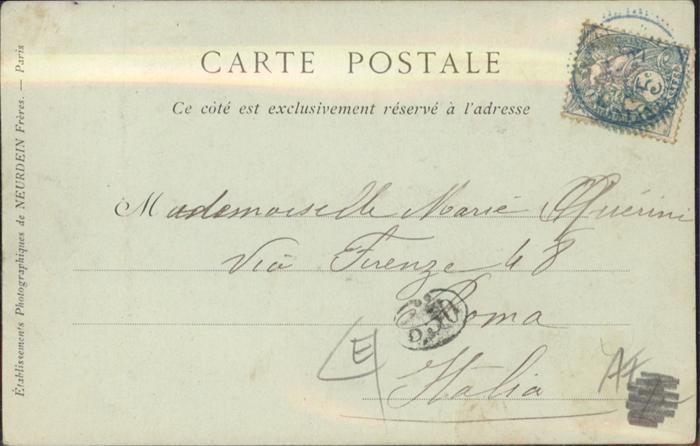 CARTE POSTALE
Ce côté est exclusivement réservé à l'adresse
Mademoiselle Marie Quérini
Via Firenze 48
Roma
Italia
Établissements Photographiques de NEURDEIN Frères. — Paris
5c
230
E